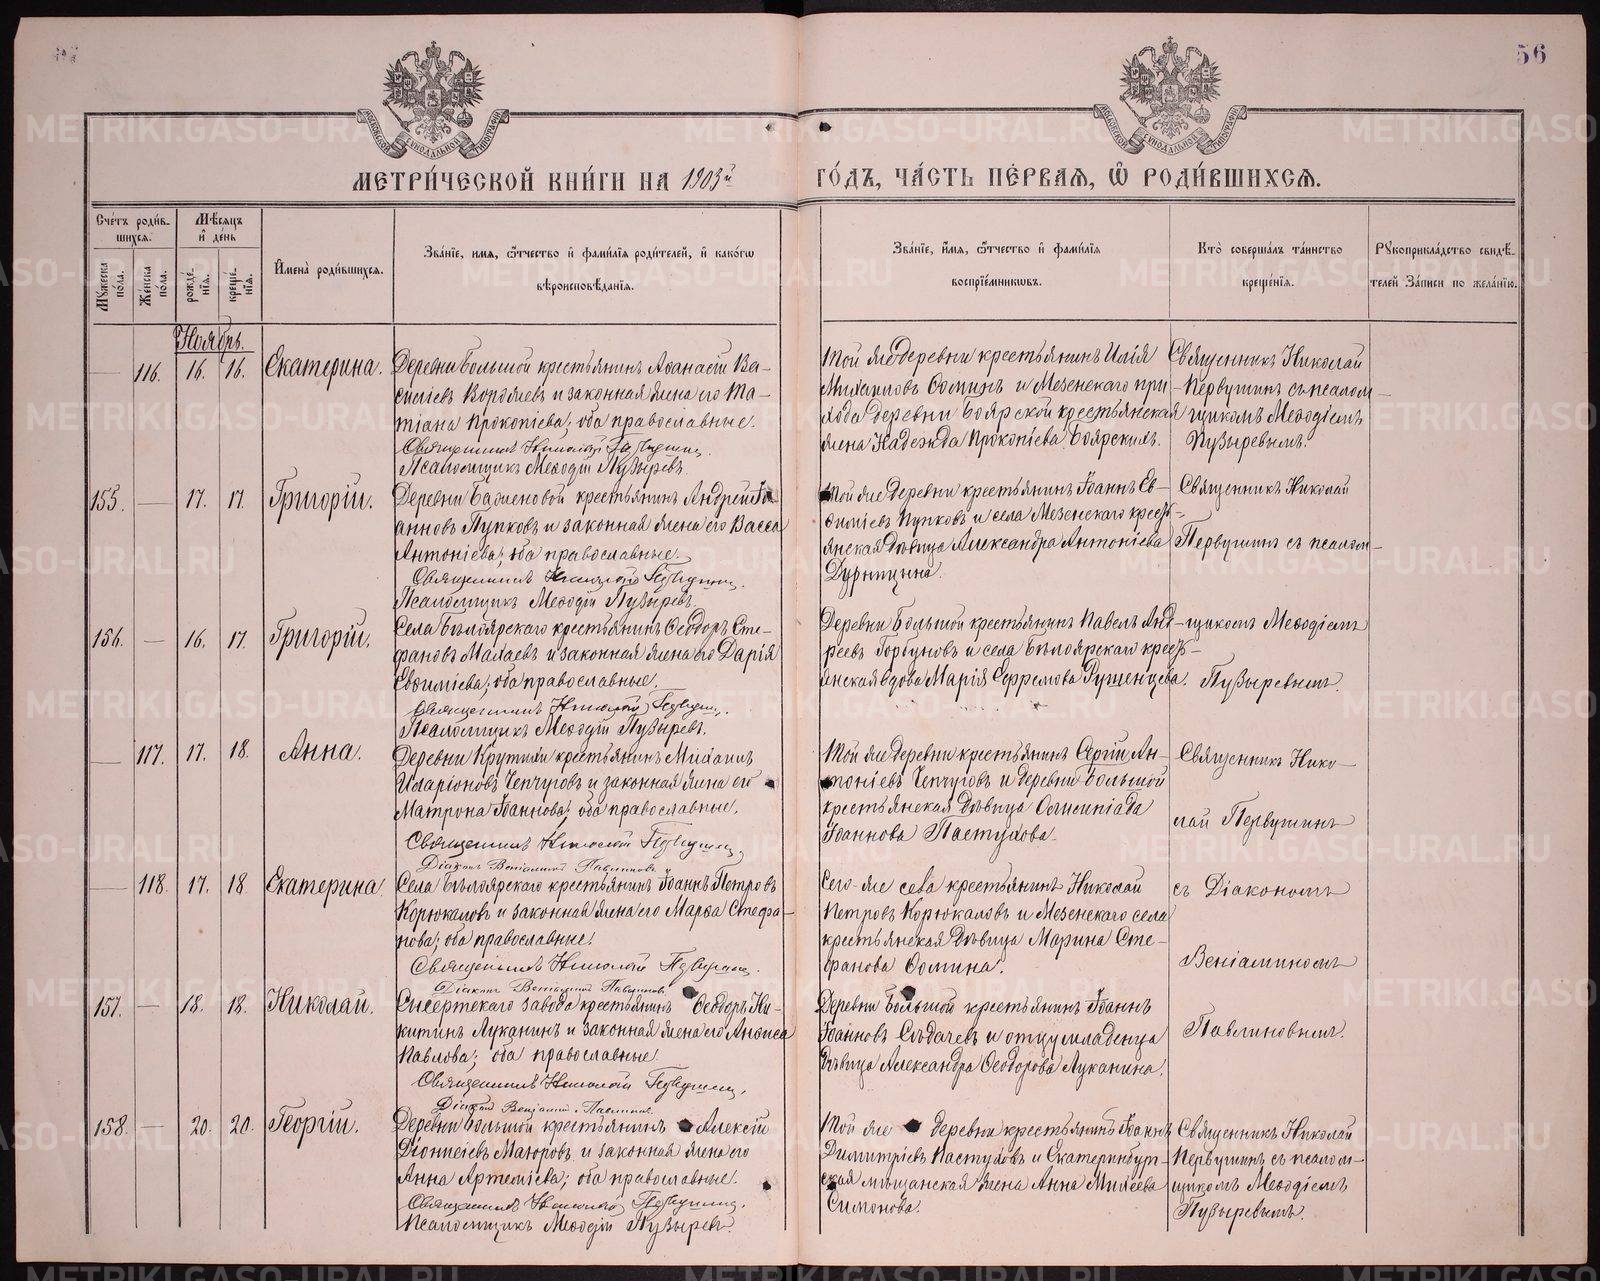 56
МЕТРИ́ЧЕСКОЙ КНИ́ГИ НА 1903й ГО́ДЪ, ЧА́СТЬ ПЕ́РВАѦ, Ѽ РОДИ́ВШИХСѦ.
Сче́тъ роди́в-
шихсѧ.
Мꙋ́жеска по́ла.
Же́нска по́ла.
Мѣ́сѧцъ
и҆ де́нь
рожде́нїѧ.
креще́нїѧ.
И҆мена̀ роди́вшихсѧ.
Зва́нїе, имѧ, ѻ҆́тчество и҆ фами́лїѧ роди́телей, и҆ како́гѡ
вѣроисповѣ́данїѧ.
Зва́нїе, и҆́мѧ, ѻ҆́тчество и҆ фами́лїѧ
воспрїе́мникѡвъ.
Кто̀ соверша́лъ та́инство
креще́нїѧ.
Рꙋкоприкла́дство свидѣ́-
телей За́писи по жела́нїю.
Ноябрь.
— 116. 16. 16. Екатерина.
Деревни Большой крестьянинъ Аѳанасій Ва-
силіевъ Воробьевъ и законная жена его Та-
тіана Прокопіева; оба православные.
Священникъ Николай Первушинъ.
Псаломщикъ Меѳодій Пузыревъ.
Той же деревни крестьянинъ Илія
Михаиловъ Ѳоминъ и Мезенскаго при-
хода деревни Боярской крестьянская
жена Надежда Прокопіева Боярскихъ.
Священникъ Николай
Первушинъ съ псалом-
щикомъ Меѳодіемъ
Пузыревымъ.
155. — 17. 17. Григорій.
Деревни Баженовой крестьянинъ Андрей Іо-
анновъ Пупковъ и законная жена его Васса
Антоніева; оба православные.
Священникъ Николай Первушинъ.
Псаломщикъ Меѳодій Пузыревъ.
Той же деревни крестьянинъ Іоаннъ Ев-
ѳиміевъ Пупковъ и села Мезенскаго кресть-
янская дѣвица Александра Антоніева
Дурницына.
Священникъ Николай
Первушинъ съ псалом-
156. — 16. 17. Григорій.
Села Бѣлоярскаго крестьянинъ Ѳеодоръ Сте-
фановъ Малаевъ и законная жена его Дарія
Евѳиміева; оба православные.
Священникъ Николай Первушинъ.
Псаломщикъ Меѳодій Пузыревъ.
Деревни Большой крестьянинъ Павелъ Анд-
реевъ Горбуновъ и села Бѣлоярскаго кресть-
янская вдова Марія Ефремова Рушенцева.
щикомъ Меѳодіемъ
Пузыревымъ.
— 117. 17. 18. Анна.
Деревни Крутихи крестьянинъ Михаилъ
Иларіоновъ Чепчуговъ и законная жена его
Матрона Іоаннова; оба православные.
Священникъ Николай Первушинъ.
Діаконъ Веніаминъ Павлиновъ.
Той же деревни крестьянинъ Сергій Ан-
тоніевъ Чепчуговъ и деревни Большой
крестьянская дѣвица Олимпіада
Іоаннова Пастухова.
Священникъ Нико-
лай Первушинъ
— 118. 17. 18. Екатерина.
Села Бѣлоярскаго крестьянинъ Іоаннъ Петровъ
Корюкаловъ и законная жена его Марѳа Стефа-
нова; оба православные.
Священникъ Николай Первушинъ.
Діаконъ Веніаминъ Павлиновъ.
Сего же села крестьянинъ Николай
Петровъ Корюкаловъ и Мезенскаго села
крестьянская дѣвица Марина Сте-
фанова Ѳомина.
съ Діакономъ
Веніаминомъ
157. — 18. 18. Николай.
Сысертскаго завода крестьянинъ Ѳеодоръ Ни-
китинъ Луканинъ и законная жена его Анѳиса
Павлова; оба православные
Священникъ Николай Первушинъ.
Діаконъ Веніаминъ Павлиновъ.
Деревни Большой крестьянинъ Іоаннъ
Іоанновъ Сѣдачевъ и отцу младенца
дѣвица Александра Ѳеодорова Луканина.
Павлиновымъ.
158. — 20. 20. Георгій.
Деревни Большой крестьянинъ Алексій
Діонисіевъ Маюровъ и законная жена его
Анна Артеміева; оба православные.
Священникъ Николай Первушинъ.
Псаломщикъ Меѳодій Пузыревъ.
Той же деревни крестьянинъ Іоаннъ
Димитріевъ Пастуховъ и Екатеринбург-
ская мѣщанская жена Анна Михеева
Симонова.
Священникъ Николай
Первушинъ съ псалом-
щикомъ Меѳодіемъ
Пузыревымъ.
METRIKI.GASO-URAL.RU